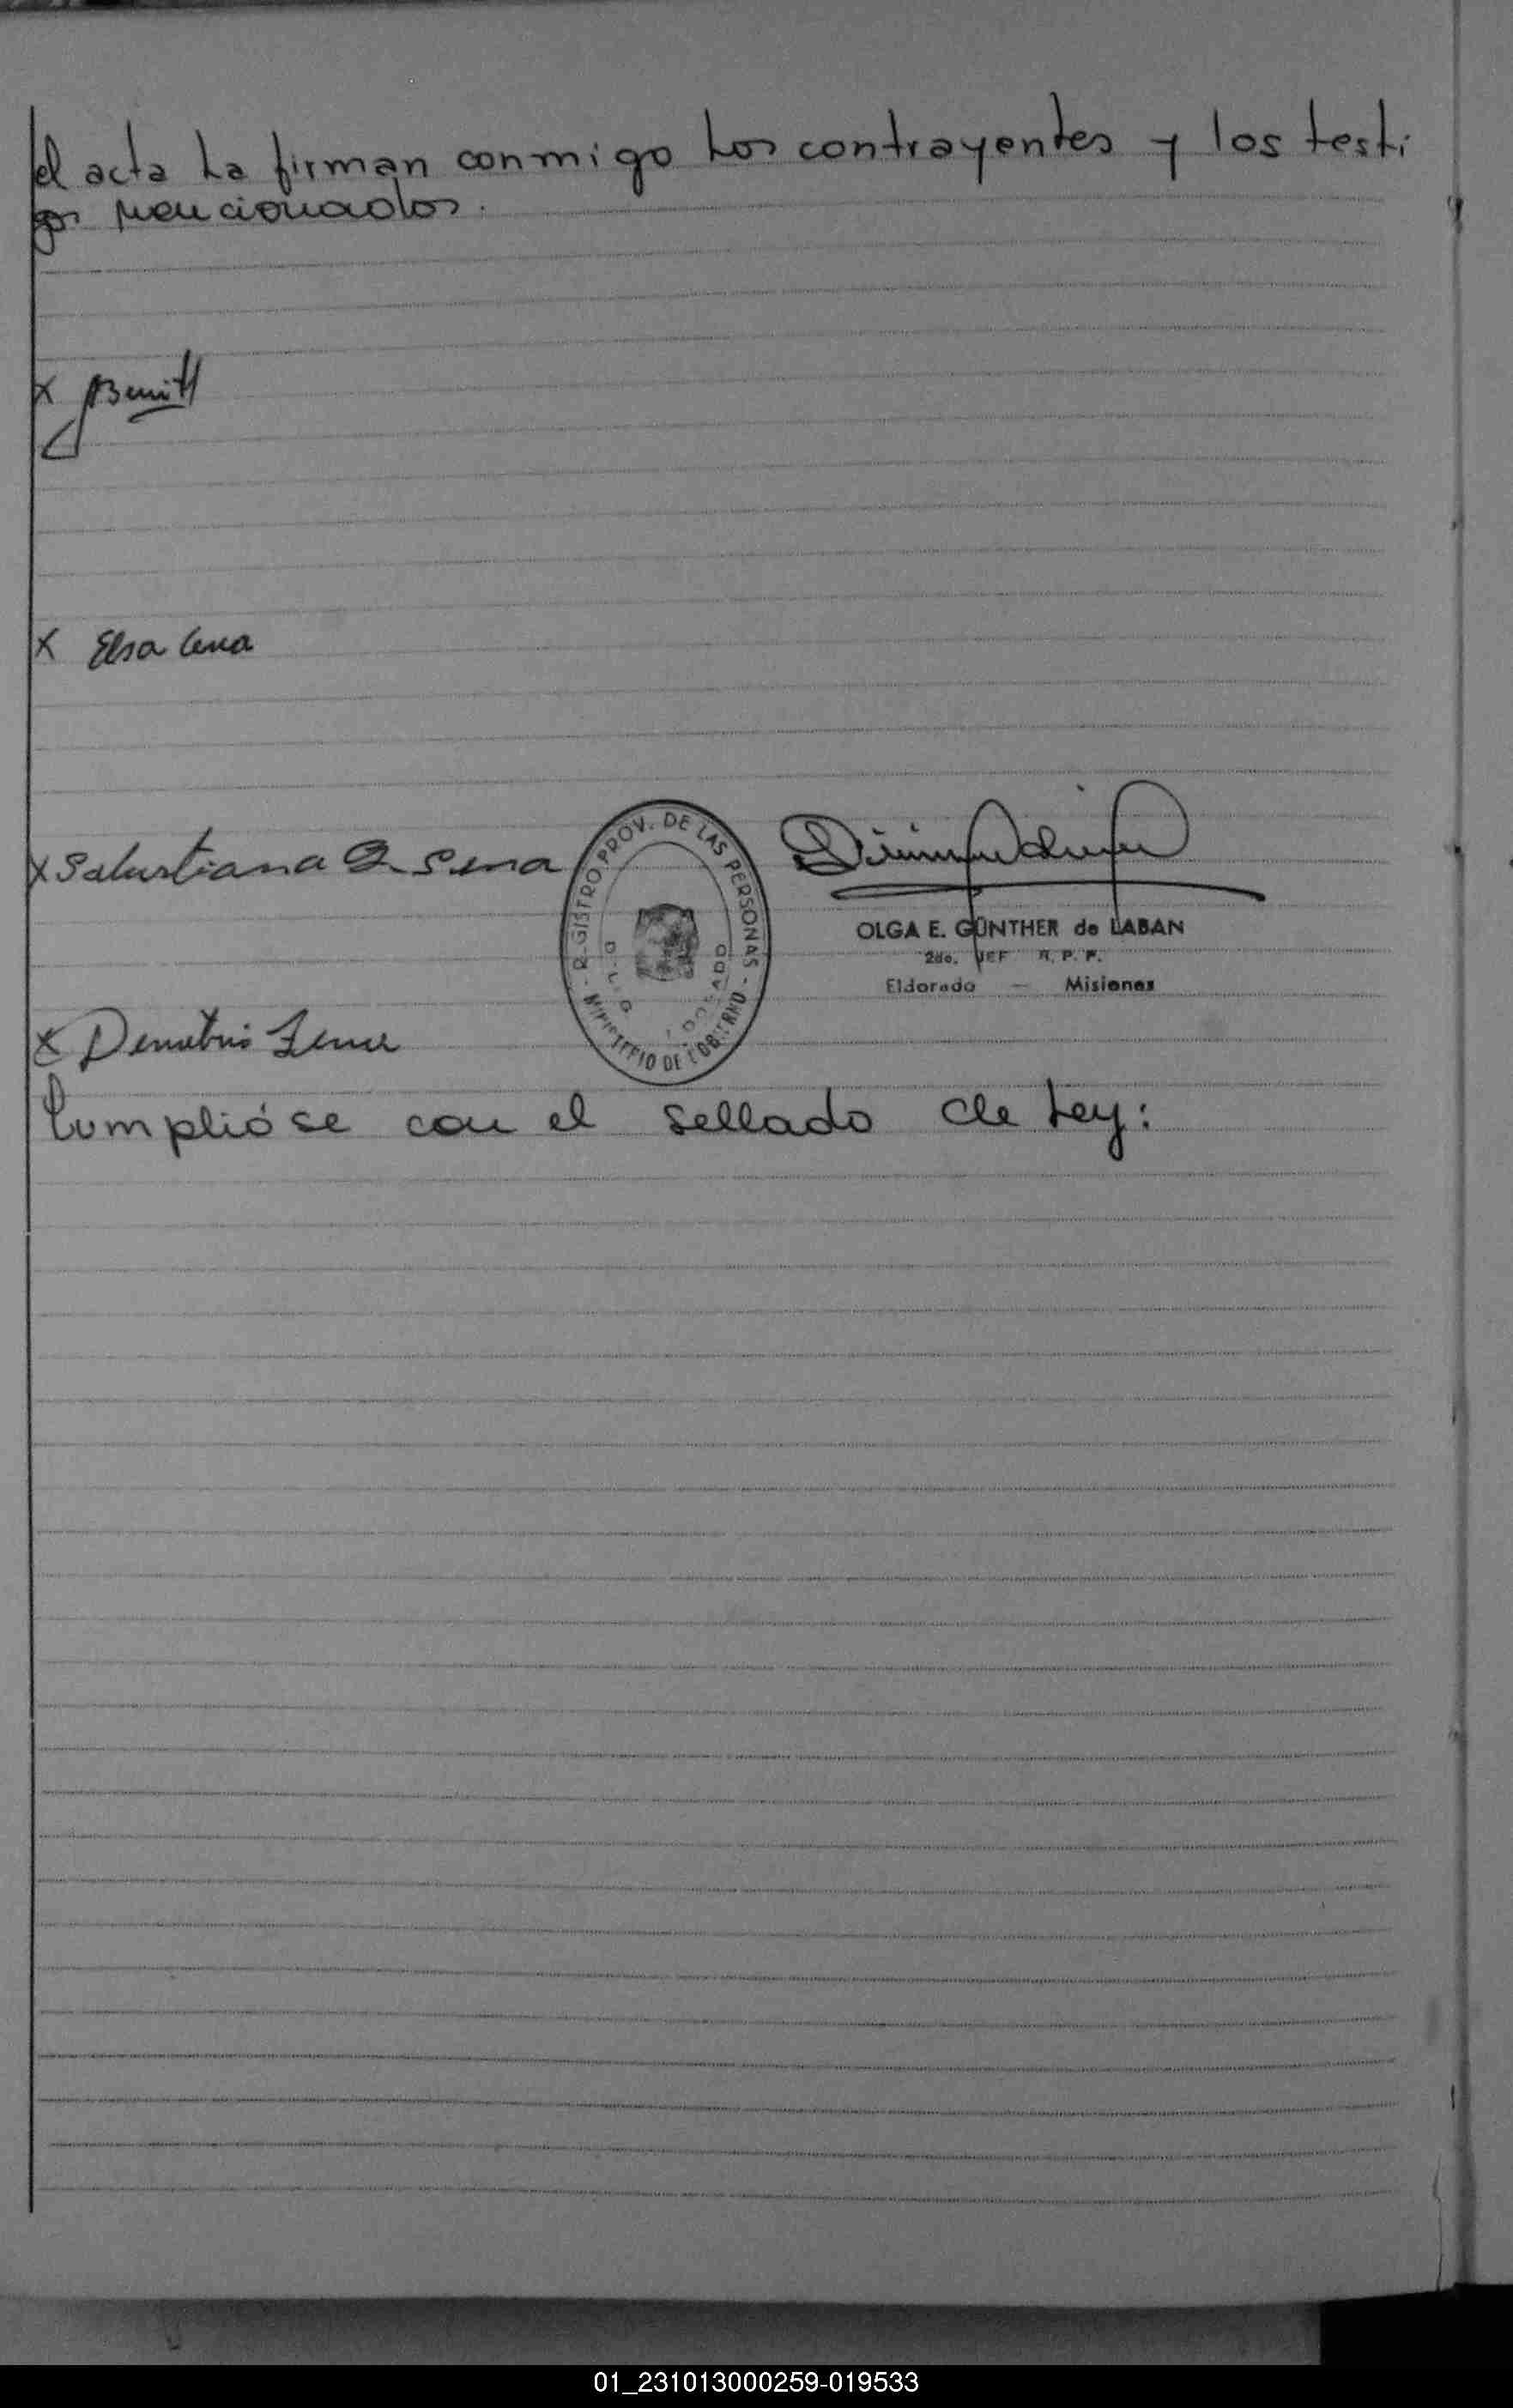 el acta La firman conmigo Los contrayentes y los testi
gos mencionados.
x
x Elsa Cena
x Salustiana Q Sena
REGISTRO PROV. DE LAS PERSONAS - MINISTERIO DE GOBIERNO -
OLGA E. GÜNTHER de LABAN
2do. JEF R. P. P.
Eldorado — Misiones
x Demetrio
Cumplióse con el sellado de Ley:
01_231013000259-019533